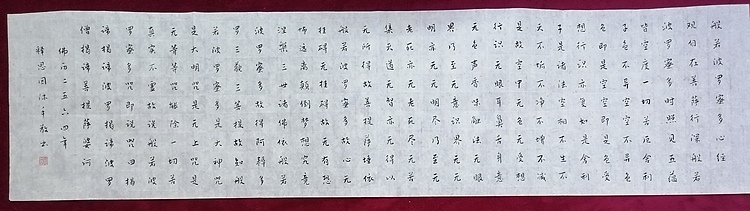 般若波罗蜜多心经
观自在菩萨行深般若
波罗蜜多时照见五蕴
皆空度一切苦厄舍利
子色不异空空不异色
色即是空空即是色受
想行识亦复如是舍利
子是诸法空相不生不
灭不垢不净不增不减
是故空中无色无受想
行识无眼耳鼻舌身意
无色声香味触法无眼
界乃至无意识界无无
明亦无无明尽乃至无
老死亦无老死尽无苦
集灭道无智亦无得以
无所得故菩提萨埵依
般若波罗蜜多故心无
挂碍无挂碍故无有恐
怖远离颠倒梦想究竟
涅槃三世诸佛依般若
波罗蜜多故得阿耨多
罗三藐三菩提故知般
若波罗蜜多是大神咒
是大明咒是无上咒是
无等等咒能除一切苦
真实不虚故说般若波
罗蜜多咒即说咒曰揭
谛揭谛波罗揭谛波罗
僧揭谛菩提萨婆诃
佛历二五六四年
释思闲沐手敬书